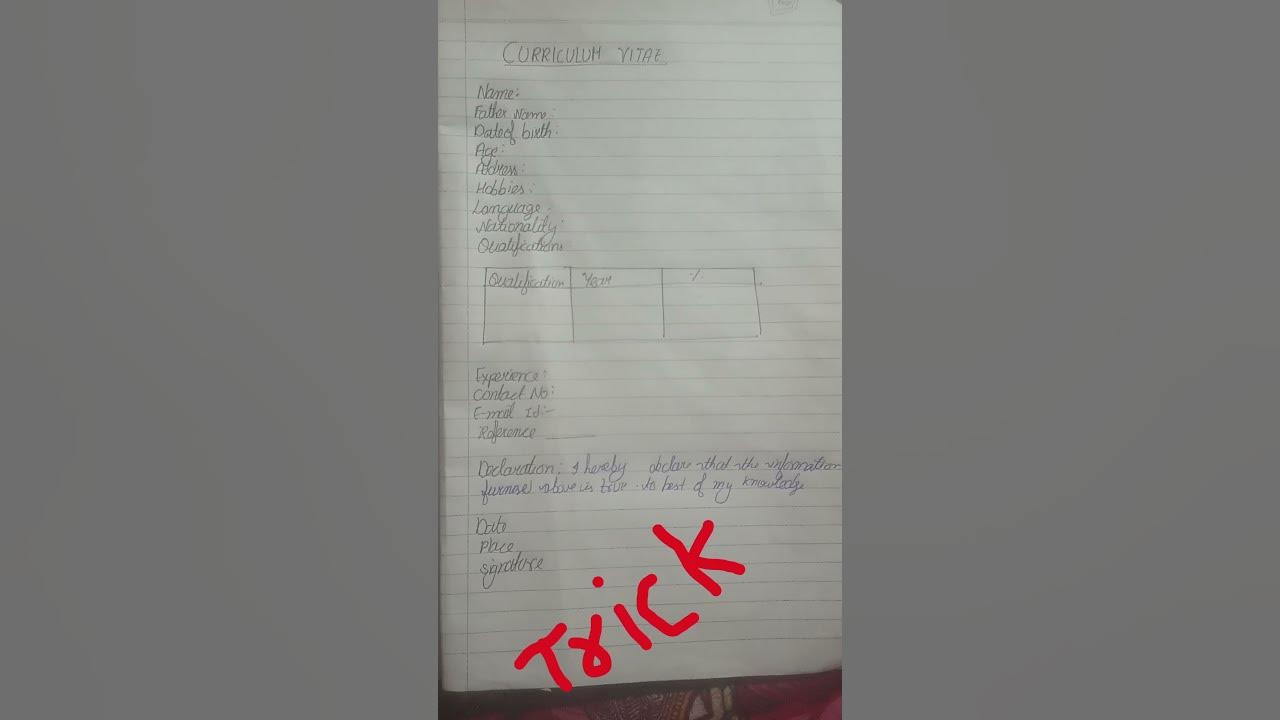 CURRICULUM VITAE
Name:
Father Name:
Date of birth:
Age:
Address:
Hobbies:
Language:
Nationality:
Qualification:
Qualification Year %
Experience:
Contact No:
E-mail Id:-
Reference
Declaration: I hereby declare that the information
above is true to best of my knowledge
Date
Place
Signature
Trick